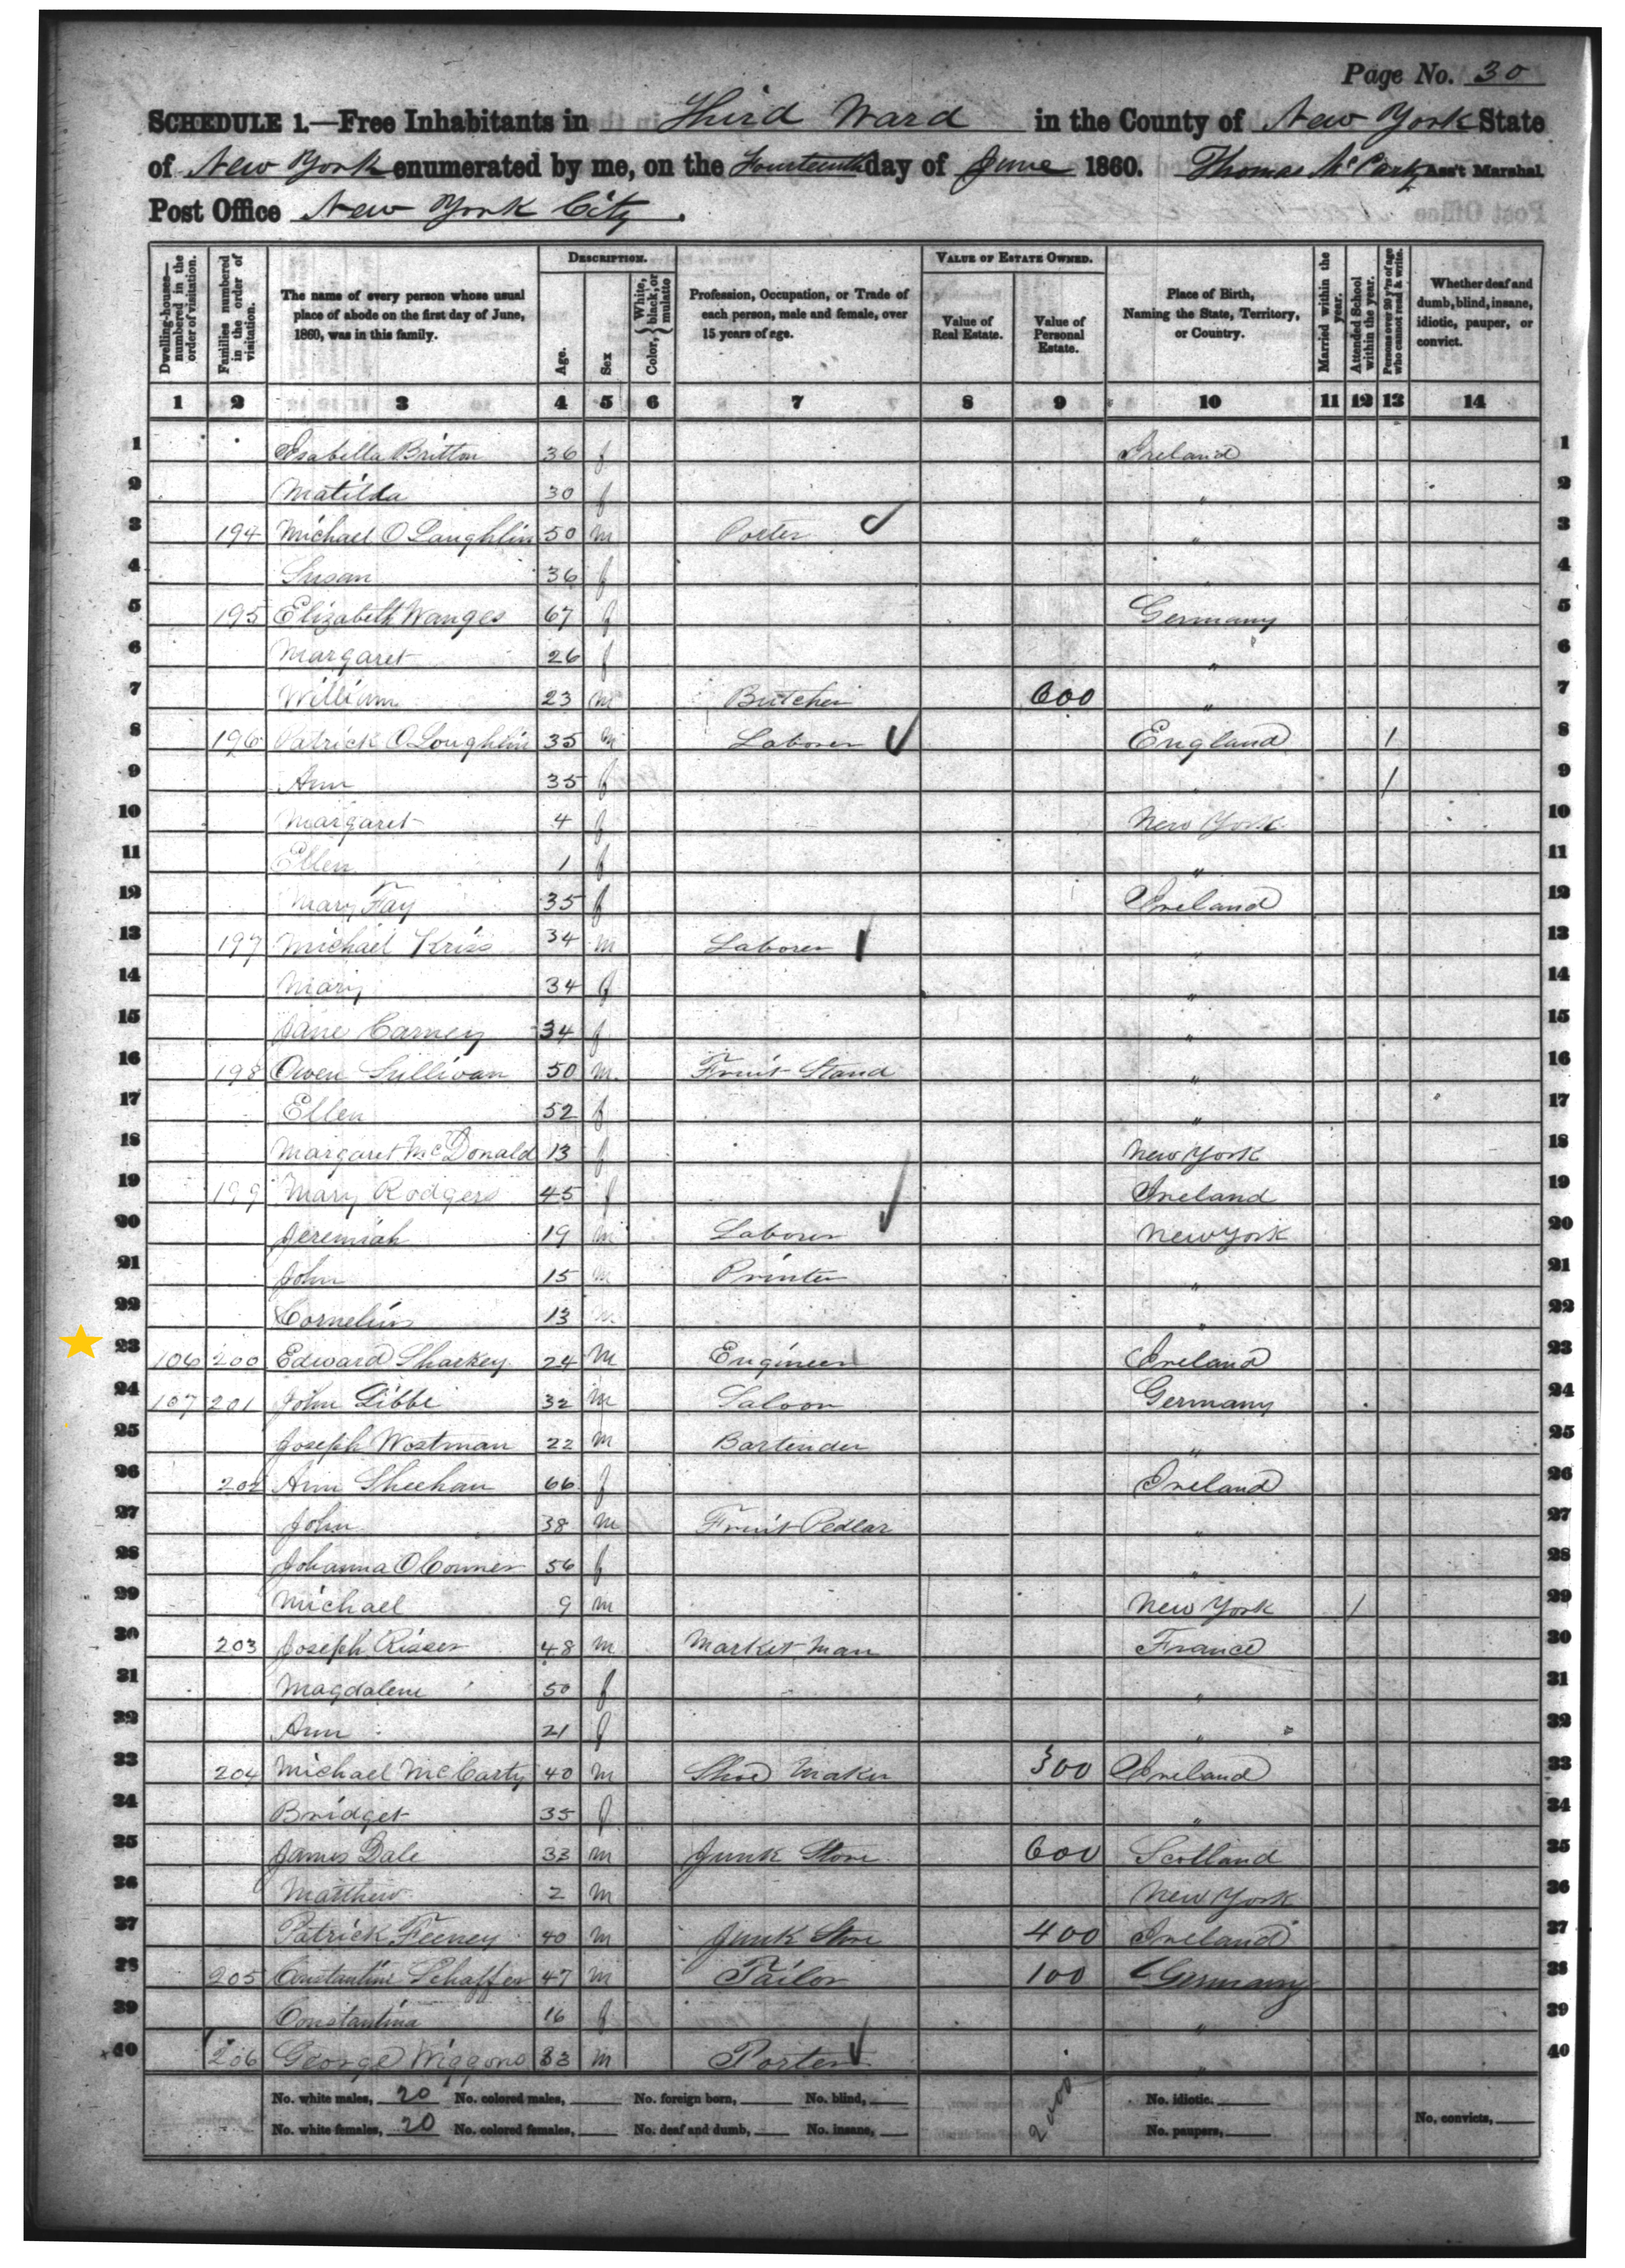 Page No. 30
SCHEDULE 1.—Free Inhabitants in Third Ward in the County of New York State
of New York enumerated by me, on the Fourteenth day of June 1860. Thomas Ass't Marshal.
Post Office New York City.
Dwelling-houses—numbered in the order of visitation.
Families numbered in the order of visitation.
The name of every person whose usual place of abode on the first day of June, 1860, was in this family.
DESCRIPTION.
Age.
Sex
Color, { White, black, or mulatto
Profession, Occupation, or Trade of each person, male and female, over 15 years of age.
VALUE OF ESTATE OWNED.
Value of Real Estate.
Value of Personal Estate.
Place of Birth, Naming the State, Territory, or Country.
Married within the year.
Attended School within the year.
Persons over 20 y'rs of age who cannot read & write.
Whether deaf and dumb, blind, insane, idiotic, pauper, or convict.
1 2 3 4 5 6 7 8 9 10 11 12 13 14
1 Isabella Britton 36 f Ireland 1
2 Matilda 30 f " 2
3 194 Michael O Laughlin 50 m Porter " 3
4 Susan 36 f " 4
5 195 Elizabeth Wanges 67 f Germany 5
6 Margaret 26 f " 6
7 William 23 m Butcher 600 " 7
8 196 Patrick O Loughlin 35 m Laborer England 1 8
9 Ann 35 f " 1 9
10 Margaret 4 f New York 10
11 Ellen 1 f " 11
12 Mary Fay 35 f Ireland 12
13 197 Michael Kriss 34 m Laborer " 13
14 Mary 34 f " 14
15 Jane Carney 34 f " 15
16 198 Owen Sullivan 50 m Fruit Stand " 16
17 Ellen 52 f " 17
18 Margaret McDonald 13 f New York 18
19 199 Mary Rodgers 45 f Ireland 19
20 Jeremiah 19 m Laborer New York 20
21 John 15 m Printer " 21
22 Cornelius 13 m " 22
23 106 200 Edward Sharkey 24 m Engineer Ireland 23
24 107 201 John Libbe 32 m Saloon Germany 24
25 Joseph Wostman 22 m Bartender " 25
26 202 Ann Sheehan 66 f Ireland 26
27 John 38 m Fruit Pedlar " 27
28 Johanna O Conner 56 f " 28
29 Michael 9 m New York 1 29
30 203 Joseph Risser 48 m Market man France 30
31 Magdalene 50 f " 31
32 Ann 21 f " 32
33 204 Michael McCarty 40 m Shoe Maker 300 Ireland 33
34 Bridget 35 f " 34
35 James Dale 33 m Junk Store 600 Scotland 35
36 Matthew 2 m New York 36
37 Patrick Feeney 40 m Junk Store 400 Ireland 37
38 205 Constantine Schaffer 47 m Tailor 100 Germany 38
39 Constantina 16 f " 39
40 206 George Wiggons 33 m Porter " 40
No. white males, 20 No. colored males, No. foreign born, No. blind, 2000 No. idiotic.
No. white females, 20 No. colored females, No. deaf and dumb, No. insane, No. paupers, No. convicts,